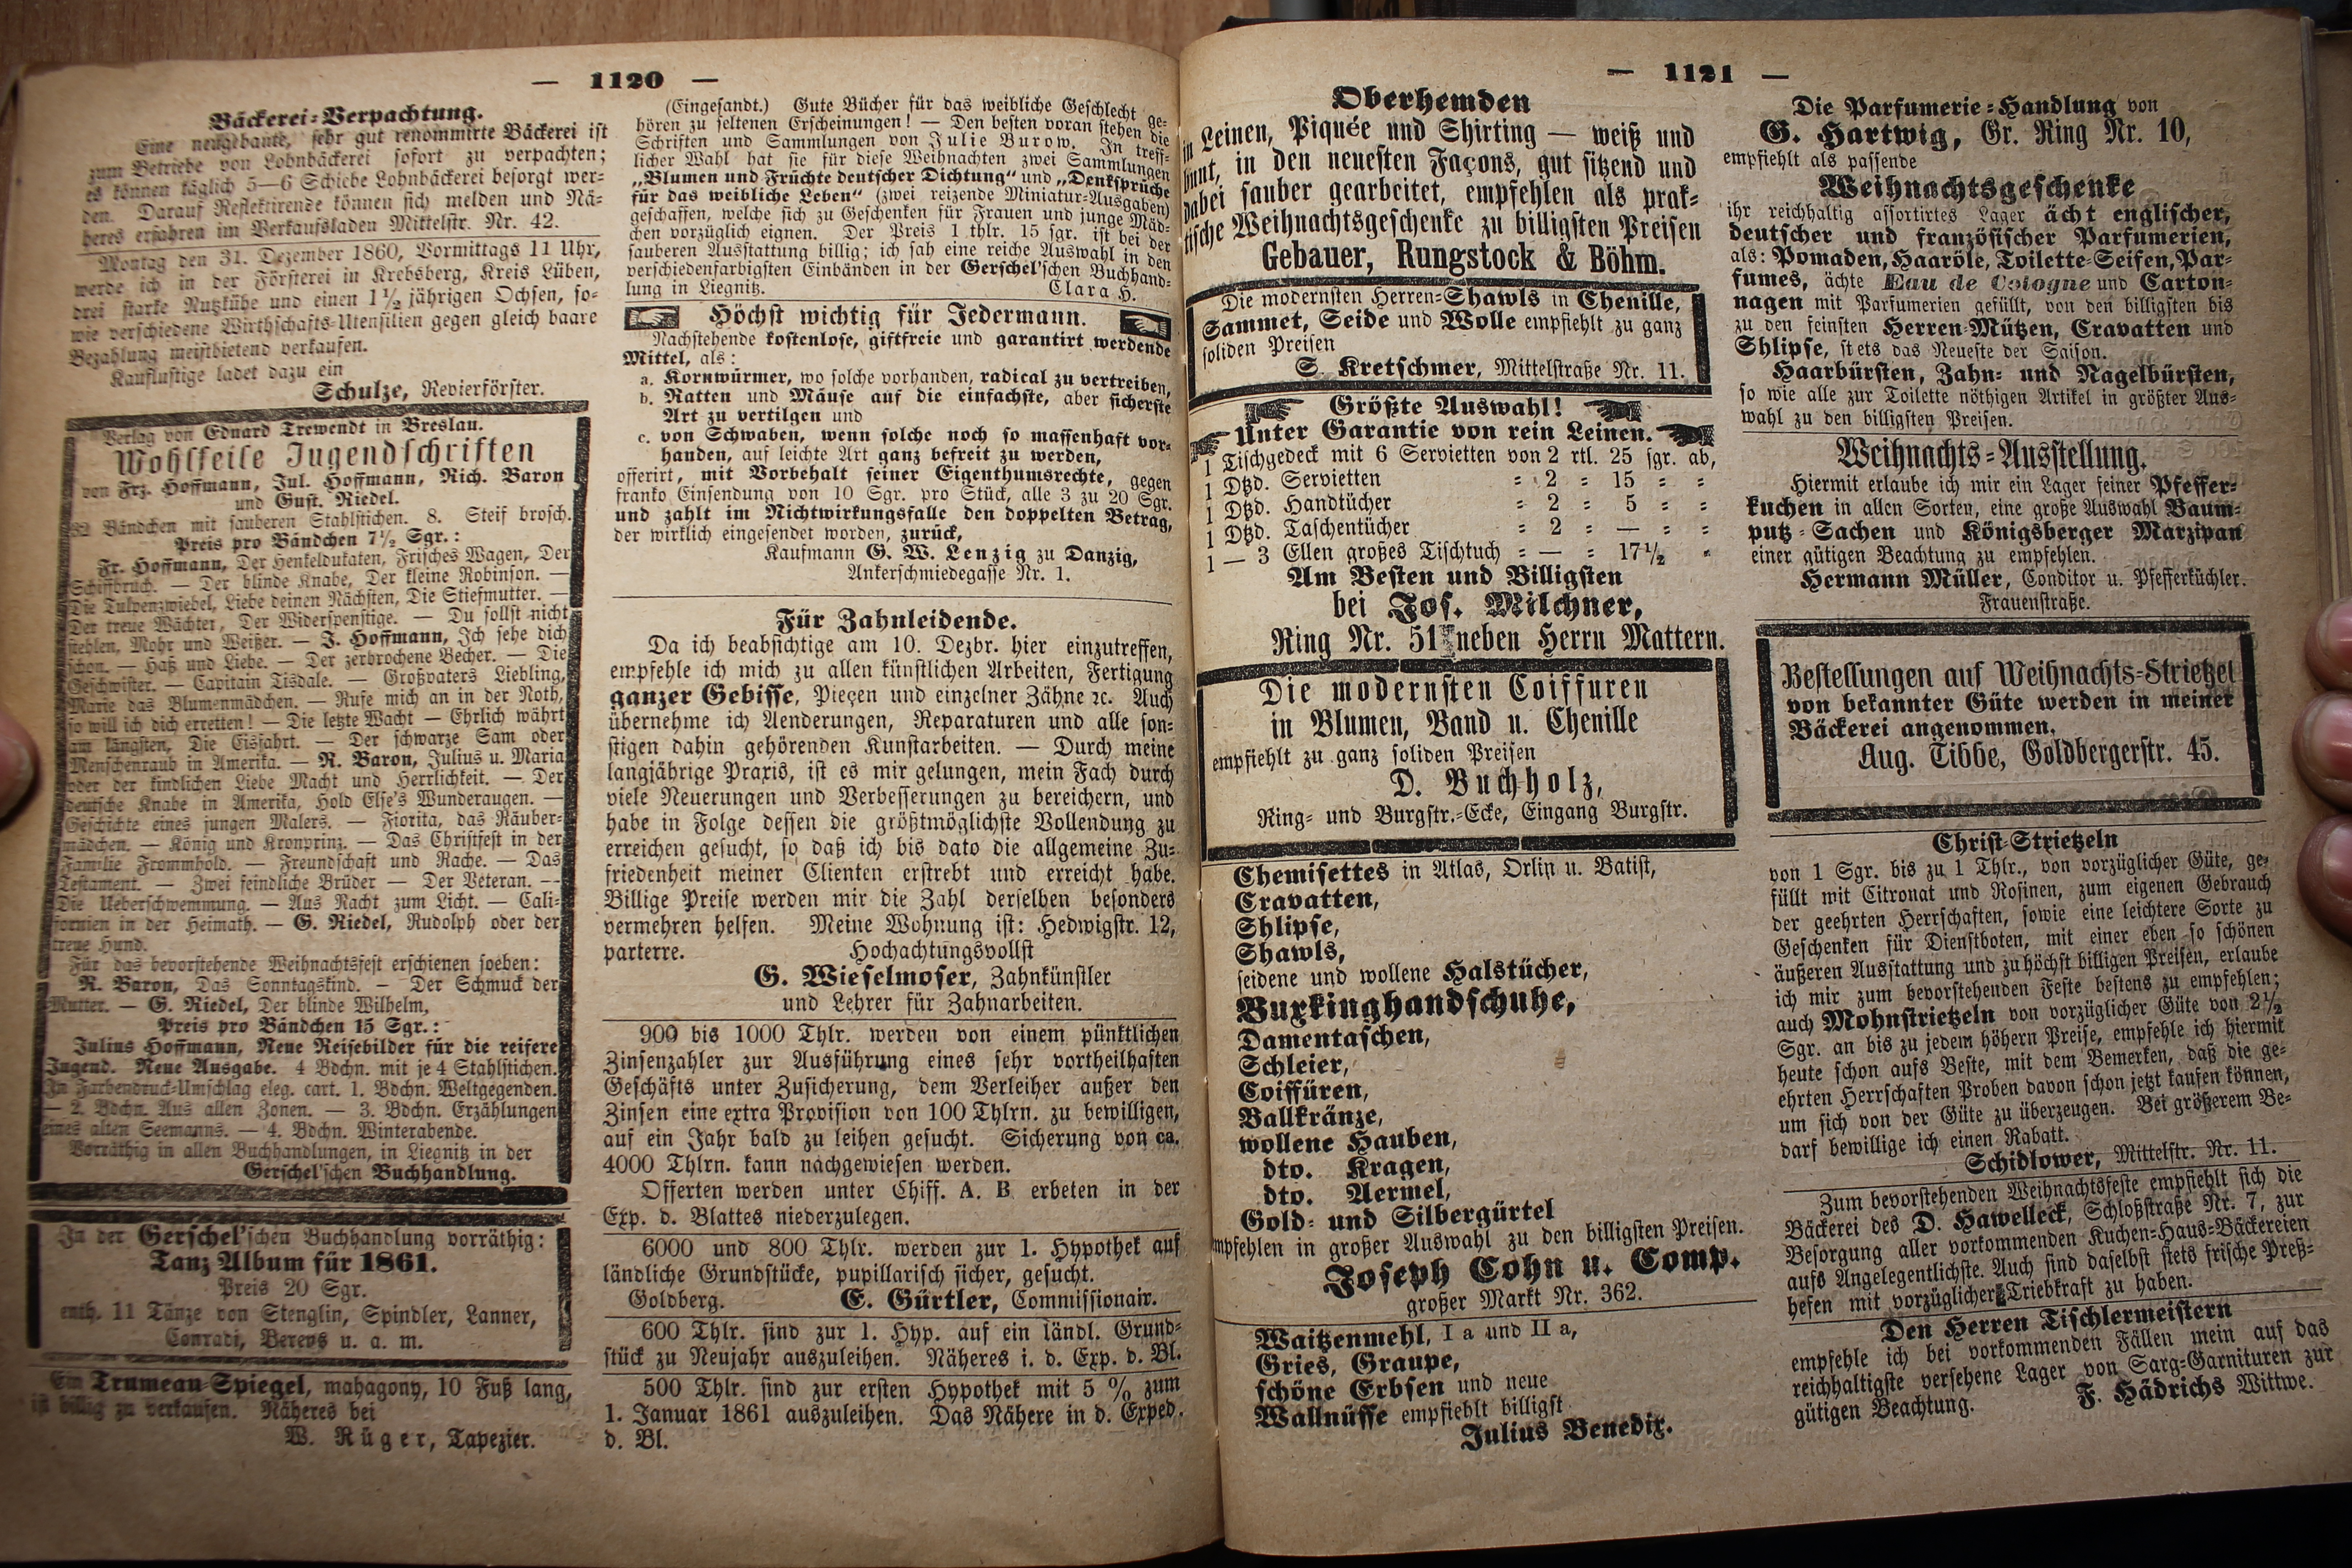 — 1120 —
Bäckerei-Verpachtung.
Eine neugebaute, sehr gut renommirte Bäckerei ist
zum Betriebe von Lohnbäckerei sofort zu verpachten;
es können täglich 5—6 Schiebe Lohnbäckerei besorgt wer-
den. Darauf Reflektirende können sich melden und Nä-
heres erfahren im Verkaufsladen Mittelstr. Nr. 42.
Montag den 31. Dezember 1860, Vormittags 11 Uhr,
werde ich in der Försterei in Krebsberg, Kreis Lüben,
drei starke Nutzkühe und einen 1½ jährigen Ochsen, so-
wie verschiedene Wirthschafts-Utensilien gegen gleich baare
Bezahlung meistbietend verkaufen.
Kauflustige ladet dazu ein
Schulze, Revierförster.
Verlag von Eduard Trewendt in Breslau.
Wohlfeile Jugendschriften
von Frz. Hoffmann, Jul. Hoffmann, Rich. Baron
und Gust. Riedel.
Bändchen mit sauberen Stahlstichen. 8. Steif brosch.
Preis pro Bändchen 7½ Sgr.:
Fr. Hoffmann, Der Henkeldukaten, Frisches Wagen, Der
Schiffbruch. — Der blinde Knabe, Der kleine Robinson. —
Die Tulpenzwiebel, Liebe deinen Nächsten, Die Stiefmutter. —
Der treue Wächter, Der Widerspenstige. — Du sollst nicht
stehlen, Mohr und Weißer. — J. Hoffmann, Ich sehe dich
schon. — Haß und Liebe. — Der zerbrochene Becher. — Die
Geschwister. — Capitain Tisdale. — Großvaters Liebling,
Marie das Blumenmädchen. — Rufe mich an in der Noth,
so will ich dich erretten! — Die letzte Wacht — Ehrlich währt
am längsten, Die Eisfahrt. — Der schwarze Sam oder
Menschenraub in Amerika. — R. Baron, Julius u. Maria
oder der kindlichen Liebe Macht und Herrlichkeit. — Der
deutsche Knabe in Amerika, Hold Else's Wunderaugen. —
Geschichte eines jungen Malers. — Fiorita, das Räuber-
mädchen. — König und Kronprinz. — Das Christfest in der
Familie Frommhold. — Freundschaft und Rache. — Das
Testament. — Zwei feindliche Brüder — Der Veteran. —
Die Ueberschwemmung. — Aus Nacht zum Licht. — Cali-
fornien in der Heimath. — G. Riedel, Rudolph oder der
treue Hund.
Für das bevorstehende Weihnachtsfest erschienen soeben:
R. Baron, Das Sonntagskind. — Der Schmuck der
Mutter. — G. Riedel, Der blinde Wilhelm,
Preis pro Bändchen 15 Sgr.:
Julius Hoffmann, Neue Reisebilder für die reifere
Jugend. Neue Ausgabe. 4 Bdchn. mit je 4 Stahlstichen.
In Farbendruck-Umschlag eleg. cart. 1. Bdchn. Weltgegenden.
— 2. Bdchn. Aus allen Zonen. — 3. Bdchn. Erzählungen
eines alten Seemanns. — 4. Bdchn. Winterabende.
Vorräthig in allen Buchhandlungen, in Liegnitz in der
Gerschel'schen Buchhandlung.
In der Gerschel'schen Buchhandlung vorräthig:
Tanz Album für 1861.
Preis 20 Sgr.
enth. 11 Tänze von Stenglin, Spindler, Lanner,
Conradi, Berens u. a. m.
Ein Trumeau-Spiegel, mahagony, 10 Fuß lang,
ist billig zu verkaufen. Näheres bei
W. Rüger, Tapezier.
(Eingesandt.) Gute Bücher für das weibliche Geschlecht ge-
hören zu seltenen Erscheinungen! — Den besten voran stehen die
Schriften und Sammlungen von Julie Burow. In treff-
licher Wahl hat sie für diese Weihnachten zwei Sammlungen
„Blumen und Früchte deutscher Dichtung" und „Denksprüche
für das weibliche Leben" (zwei reizende Miniatur-Ausgaben)
geschaffen, welche sich zu Geschenken für Frauen und junge Mäd-
chen vorzüglich eignen. Der Preis 1 thlr. 15 sgr. ist bei der
sauberen Ausstattung billig; ich sah eine reiche Auswahl in den
verschiedenfarbigsten Einbänden in der Gerschel'schen Buchhand-
lung in Liegnitz. Clara H.
Höchst wichtig für Jedermann.
Nachstehende kostenlose, giftfreie und garantirt werdende
Mittel, als:
a. Kornwürmer, wo solche vorhanden, radical zu vertreiben,
b. Ratten und Mäuse auf die einfachste, aber sicherste
Art zu vertilgen und
c. von Schwaben, wenn solche noch so massenhaft vor-
handen, auf leichte Art ganz befreit zu werden,
offerirt, mit Vorbehalt seiner Eigenthumsrechte, gegen
franko Einsendung von 10 Sgr. pro Stück, alle 3 zu 20 Sgr.
und zahlt im Nichtwirkungsfalle den doppelten Betrag,
der wirklich eingesendet worden, zurück,
Kaufmann G. W. Lenzig zu Danzig,
Ankerschmiedegasse Nr. 1.
Für Zahnleidende.
Da ich beabsichtige am 10. Dezbr. hier einzutreffen,
empfehle ich mich zu allen künstlichen Arbeiten, Fertigung
ganzer Gebisse, Pieçen und einzelner Zähne ꝛc. Auch
übernehme ich Aenderungen, Reparaturen und alle son-
stigen dahin gehörenden Kunstarbeiten. — Durch meine
langjährige Praxis, ist es mir gelungen, mein Fach durch
viele Neuerungen und Verbesserungen zu bereichern, und
habe in Folge dessen die größtmöglichste Vollendung zu
erreichen gesucht, so daß ich bis dato die allgemeine Zu-
friedenheit meiner Clienten erstrebt und erreicht habe.
Billige Preise werden mir die Zahl derselben besonders
vermehren helfen. Meine Wohnung ist: Hedwigstr. 12,
parterre. Hochachtungsvollst
G. Wieselmoser, Zahnkünstler
und Lehrer für Zahnarbeiten.
900 bis 1000 Thlr. werden von einem pünktlichen
Zinsenzahler zur Ausführung eines sehr vortheilhaften
Geschäfts unter Zusicherung, dem Verleiher außer den
Zinsen eine extra Provision von 100 Thlrn. zu bewilligen,
auf ein Jahr bald zu leihen gesucht. Sicherung von ca.
4000 Thlrn. kann nachgewiesen werden.
Offerten werden unter Chiff. A. B erbeten in der
Exp. d. Blattes niederzulegen.
6000 und 800 Thlr. werden zur 1. Hypothek auf
ländliche Grundstücke, pupillarisch sicher, gesucht.
Goldberg. E. Gürtler, Commissionair.
600 Thlr. sind zur 1. Hyp. auf ein ländl. Grund-
stück zu Neujahr auszuleihen. Näheres i. d. Exp. d. Bl.
500 Thlr. sind zur ersten Hypothek mit 5 % zum
1. Januar 1861 auszuleihen. Das Nähere in d. Exped.
d. Bl.
— 1121 —
Oberhemden
in Leinen, Piquée und Shirting — weiß und
bunt, in den neuesten Façons, gut sitzend und
dabei sauber gearbeitet, empfehlen als prak-
tische Weihnachtsgeschenke zu billigsten Preisen
Gebauer, Rungstock & Böhm.
Die modernsten Herren-Shawls in Chenille,
Sammet, Seide und Wolle empfiehlt zu ganz
soliden Preisen
S. Kretschmer, Mittelstraße Nr. 11.
Größte Auswahl!
Unter Garantie von rein Leinen.
1 Tischgedeck mit 6 Servietten von 2 rtl. 25 sgr. ab,
1 Dtzd. Servietten = 2 = 15 = =
1 Dtzd. Handtücher = 2 = 5 = =
1 Dtzd. Taschentücher = 2 = — = =
1 — 3 Ellen großes Tischtuch = — = 17½ =
Am Besten und Billigsten
bei Jos. Milchner,
Ring Nr. 51 neben Herrn Mattern.
Die modernsten Coiffuren
in Blumen, Band u. Chenille
empfiehlt zu ganz soliden Preisen
D. Buchholz,
Ring- und Burgstr.-Ecke, Eingang Burgstr.
Chemisettes in Atlas, Orlin u. Batist,
Cravatten,
Shlipse,
Shawls,
seidene und wollene Halstücher,
Buxkinghandschuhe,
Damentaschen,
Schleier,
Coiffüren,
Ballkränze,
wollene Hauben,
dto. Kragen,
dto. Aermel,
Gold- und Silbergürtel
empfehlen in großer Auswahl zu den billigsten Preisen.
Joseph Cohn u. Comp.
großer Markt Nr. 362.
Waitzenmehl, I a und II a,
Gries, Graupe,
schöne Erbsen und neue
Wallnüsse empfiehlt billigst
Julius Benedix.
Die Parfumerie-Handlung von
G. Hartwig, Gr. Ring Nr. 10,
empfiehlt als passende
Weihnachtsgeschenke
ihr reichhaltig assortirtes Lager ächt englischer,
deutscher und französischer Parfumerien,
als: Pomaden, Haaröle, Toilette-Seifen, Par-
fumes, ächte Eau de Cologne und Carton-
nagen mit Parfumerien gefüllt, von den billigsten bis
zu den feinsten Herren-Mützen, Cravatten und
Shlipse, stets das Neueste der Saison.
Haarbürsten, Zahn- und Nagelbürsten,
so wie alle zur Toilette nöthigen Artikel in größter Aus-
wahl zu den billigsten Preisen.
Weihnachts-Ausstellung.
Hiermit erlaube ich mir ein Lager feiner Pfeffer-
kuchen in allen Sorten, eine große Auswahl Baum-
putz-Sachen und Königsberger Marzipan
einer gütigen Beachtung zu empfehlen.
Hermann Müller, Conditor u. Pfefferküchler.
Frauenstraße.
Bestellungen auf Weihnachts-Strietzel
von bekannter Güte werden in meiner
Bäckerei angenommen.
Aug. Tibbe, Goldbergerstr. 45.
Christ-Strietzeln
von 1 Sgr. bis zu 1 Thlr., von vorzüglicher Güte, ge-
füllt mit Citronat und Rosinen, zum eigenen Gebrauch
der geehrten Herrschaften, sowie eine leichtere Sorte zu
Geschenken für Dienstboten, mit einer eben so schönen
äußeren Ausstattung und zu höchst billigen Preisen, erlaube
ich mir zum bevorstehenden Feste bestens zu empfehlen;
auch Mohnstrietzeln von vorzüglicher Güte von 2½
Sgr. an bis zu jedem höhern Preise, empfehle ich hiermit
heute schon aufs Beste, mit dem Bemerken, daß die ge-
ehrten Herrschaften Proben davon schon jetzt kaufen können,
um sich von der Güte zu überzeugen. Bei größerem Be-
darf bewillige ich einen Rabatt.
Schidlower, Mittelstr. Nr. 11.
Zum bevorstehenden Weihnachtsfeste empfiehlt sich die
Bäckerei des D. Hawelleck, Schloßstraße Nr. 7, zur
Besorgung aller vorkommenden Kuchen-Haus-Bäckereien
aufs Angelegentlichste. Auch sind daselbst stets frische Preß-
hefen mit vorzüglicher Triebkraft zu haben.
Den Herren Tischlermeistern
empfehle ich bei vorkommenden Fällen mein auf das
reichhaltigste versehene Lager von Sarg-Garnituren zur
gütigen Beachtung. F. Hädrichs Wittwe.